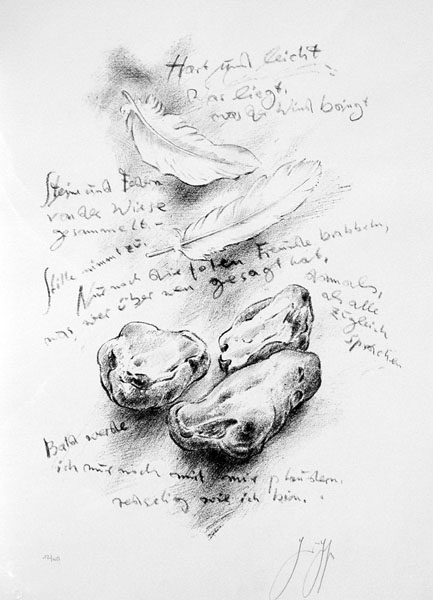 Hart und leicht
liegt,
was der Wind bringt
Steine und Federn
von der Wiese
gesammelt. –
Stille nimmt zu.
Nur noch die toten Freunde brabbeln,
was wer über wen gesagt hat,
damals,
als alle
zugleich
sprachen
Bald werde
ich nur noch mit mir plaudern,
redselig wie ich bin.